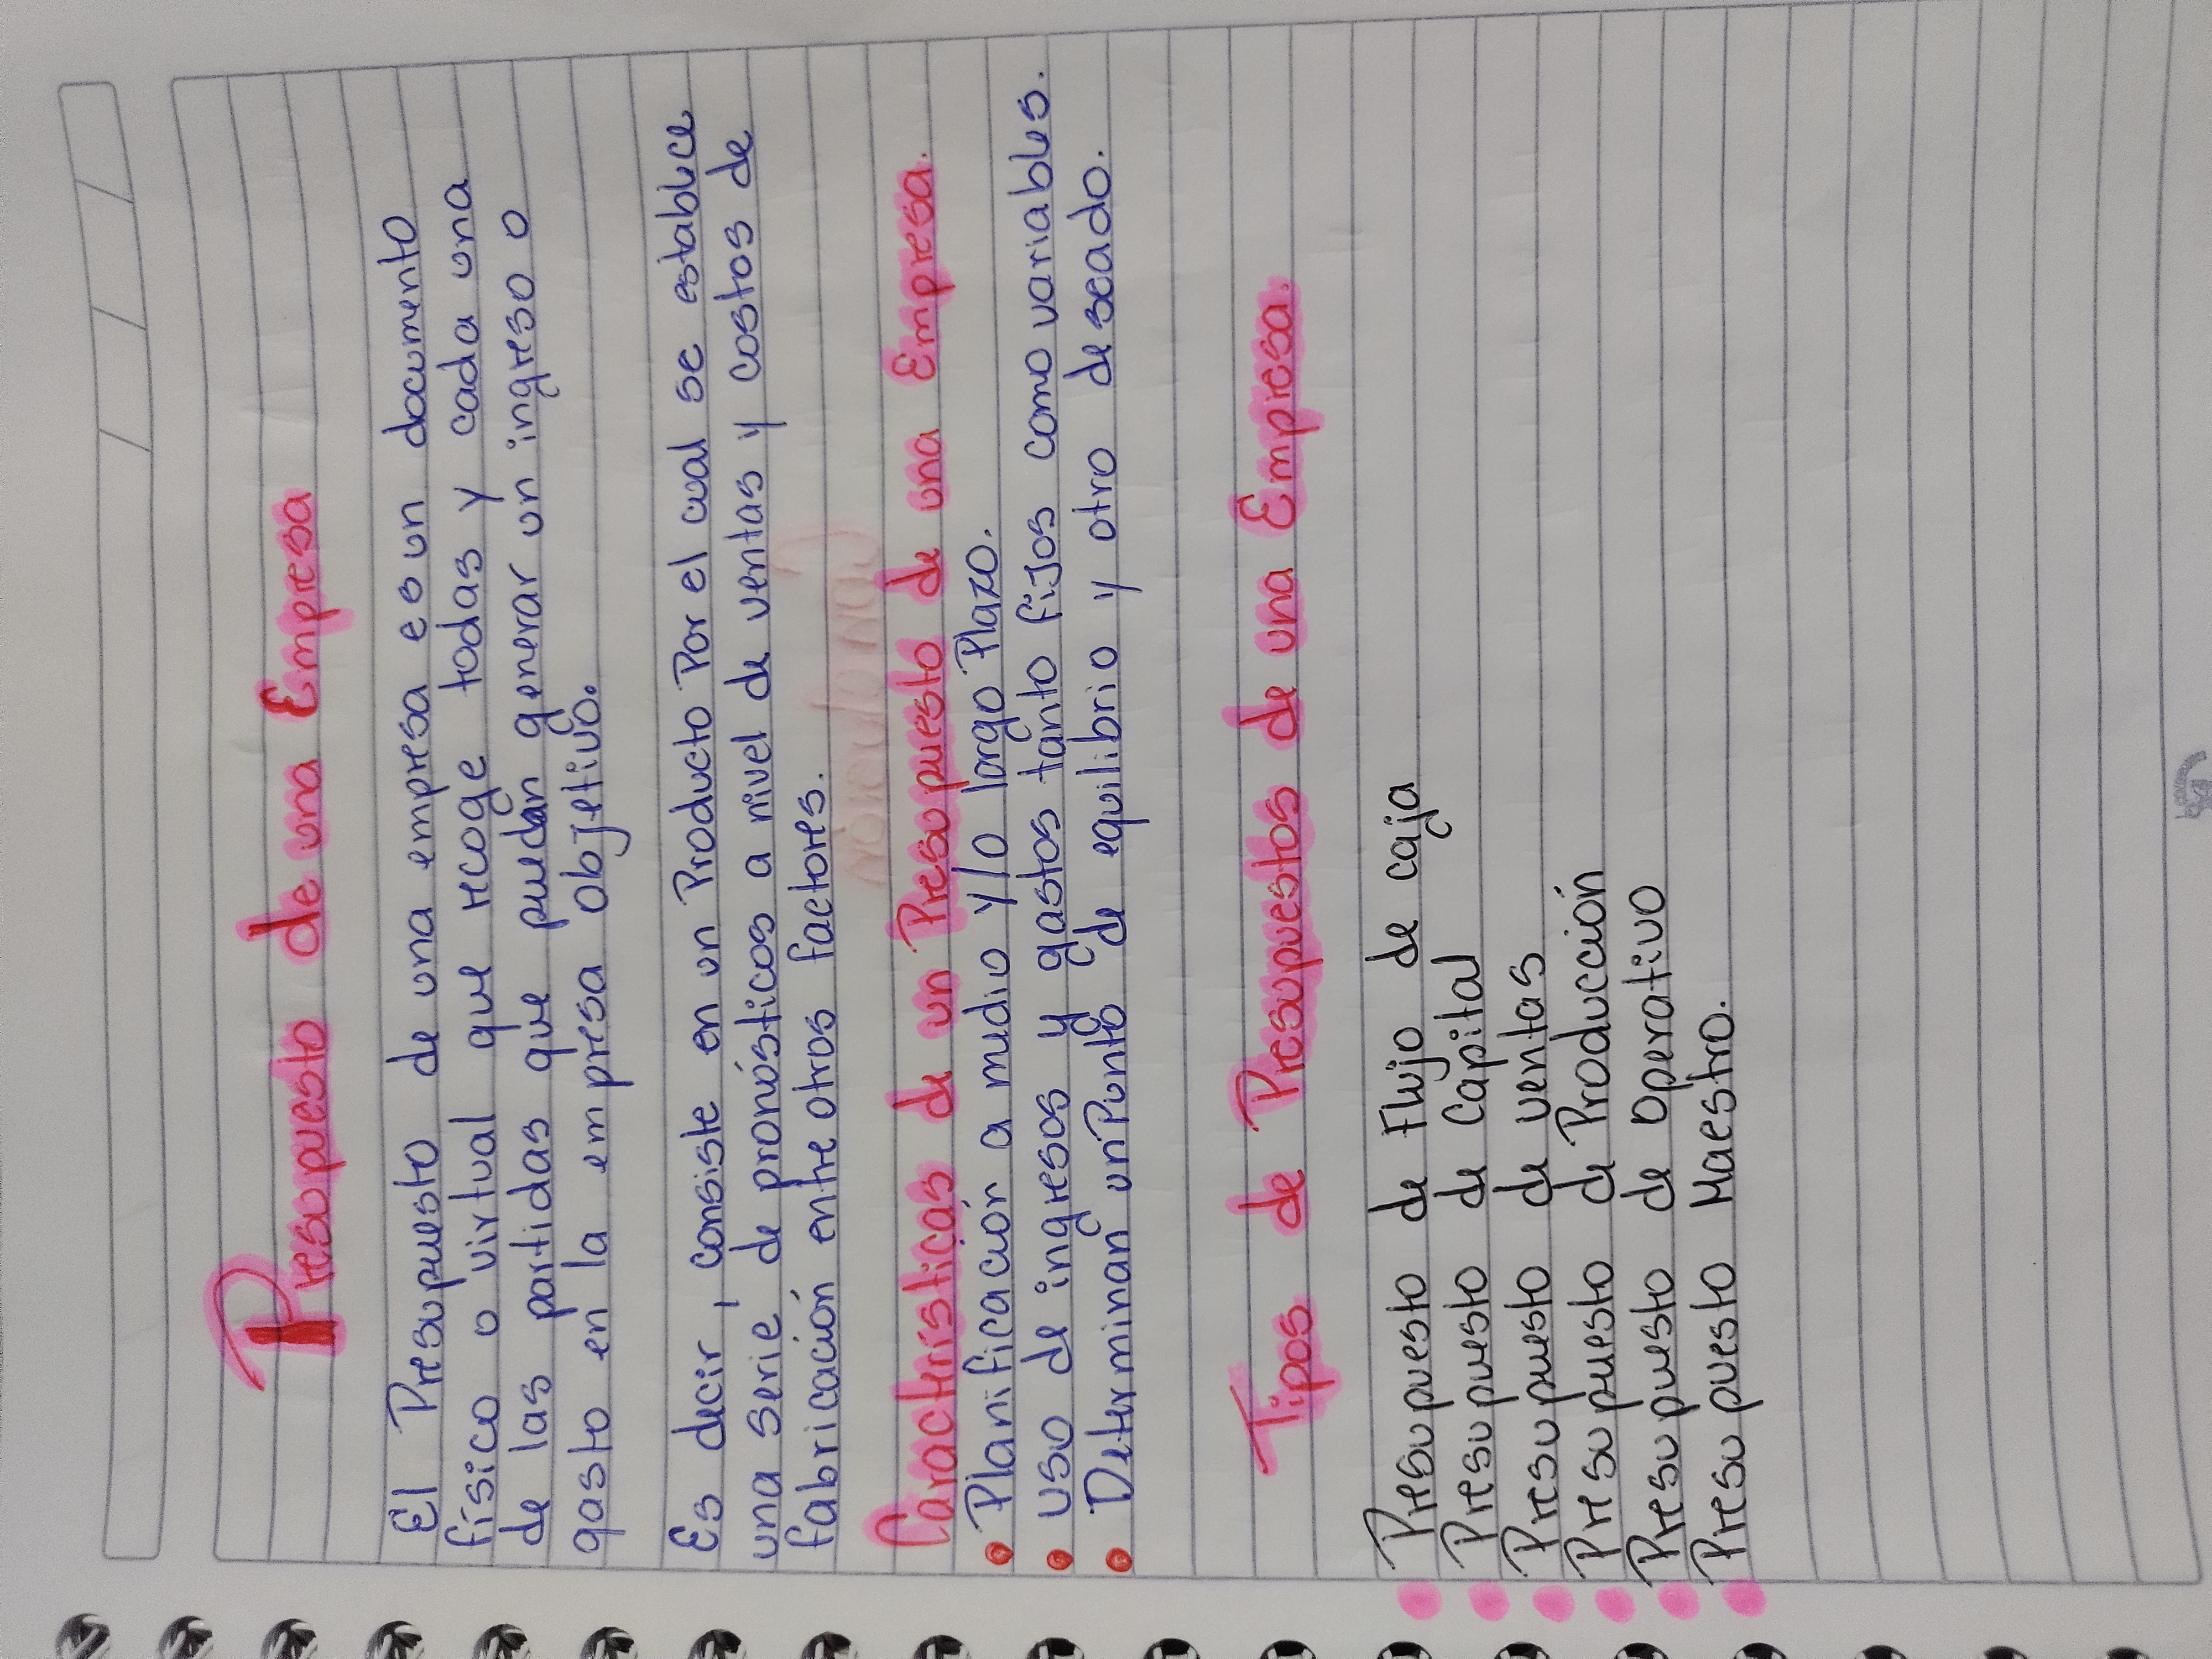 Presupuesto de una Empresa
El Presupuesto de una empresa es un documento
físico o virtual que recoge todas y cada una
de las partidas que puedan generar un ingreso o
gasto en la empresa objetivo.
Es decir, consiste en un Producto Por el cual se establece
una serie de pronósticos a nivel de ventas y costos de
fabricación entre otros factores.
Características de un Presupuesto de una Empresa.
• Planificación a medio y/o largo Plazo.
• uso de ingresos y gastos tanto fijos como variables.
• Determinan un Punto de equilibrio y otro deseado.
Tipos de Presupuestos de una Empresa.
Presupuesto de Flujo de caja
Presupuesto de Capital
Presupuesto de ventas
Presupuesto de Producción
Presupuesto de Operativo
Presupuesto Maestro.